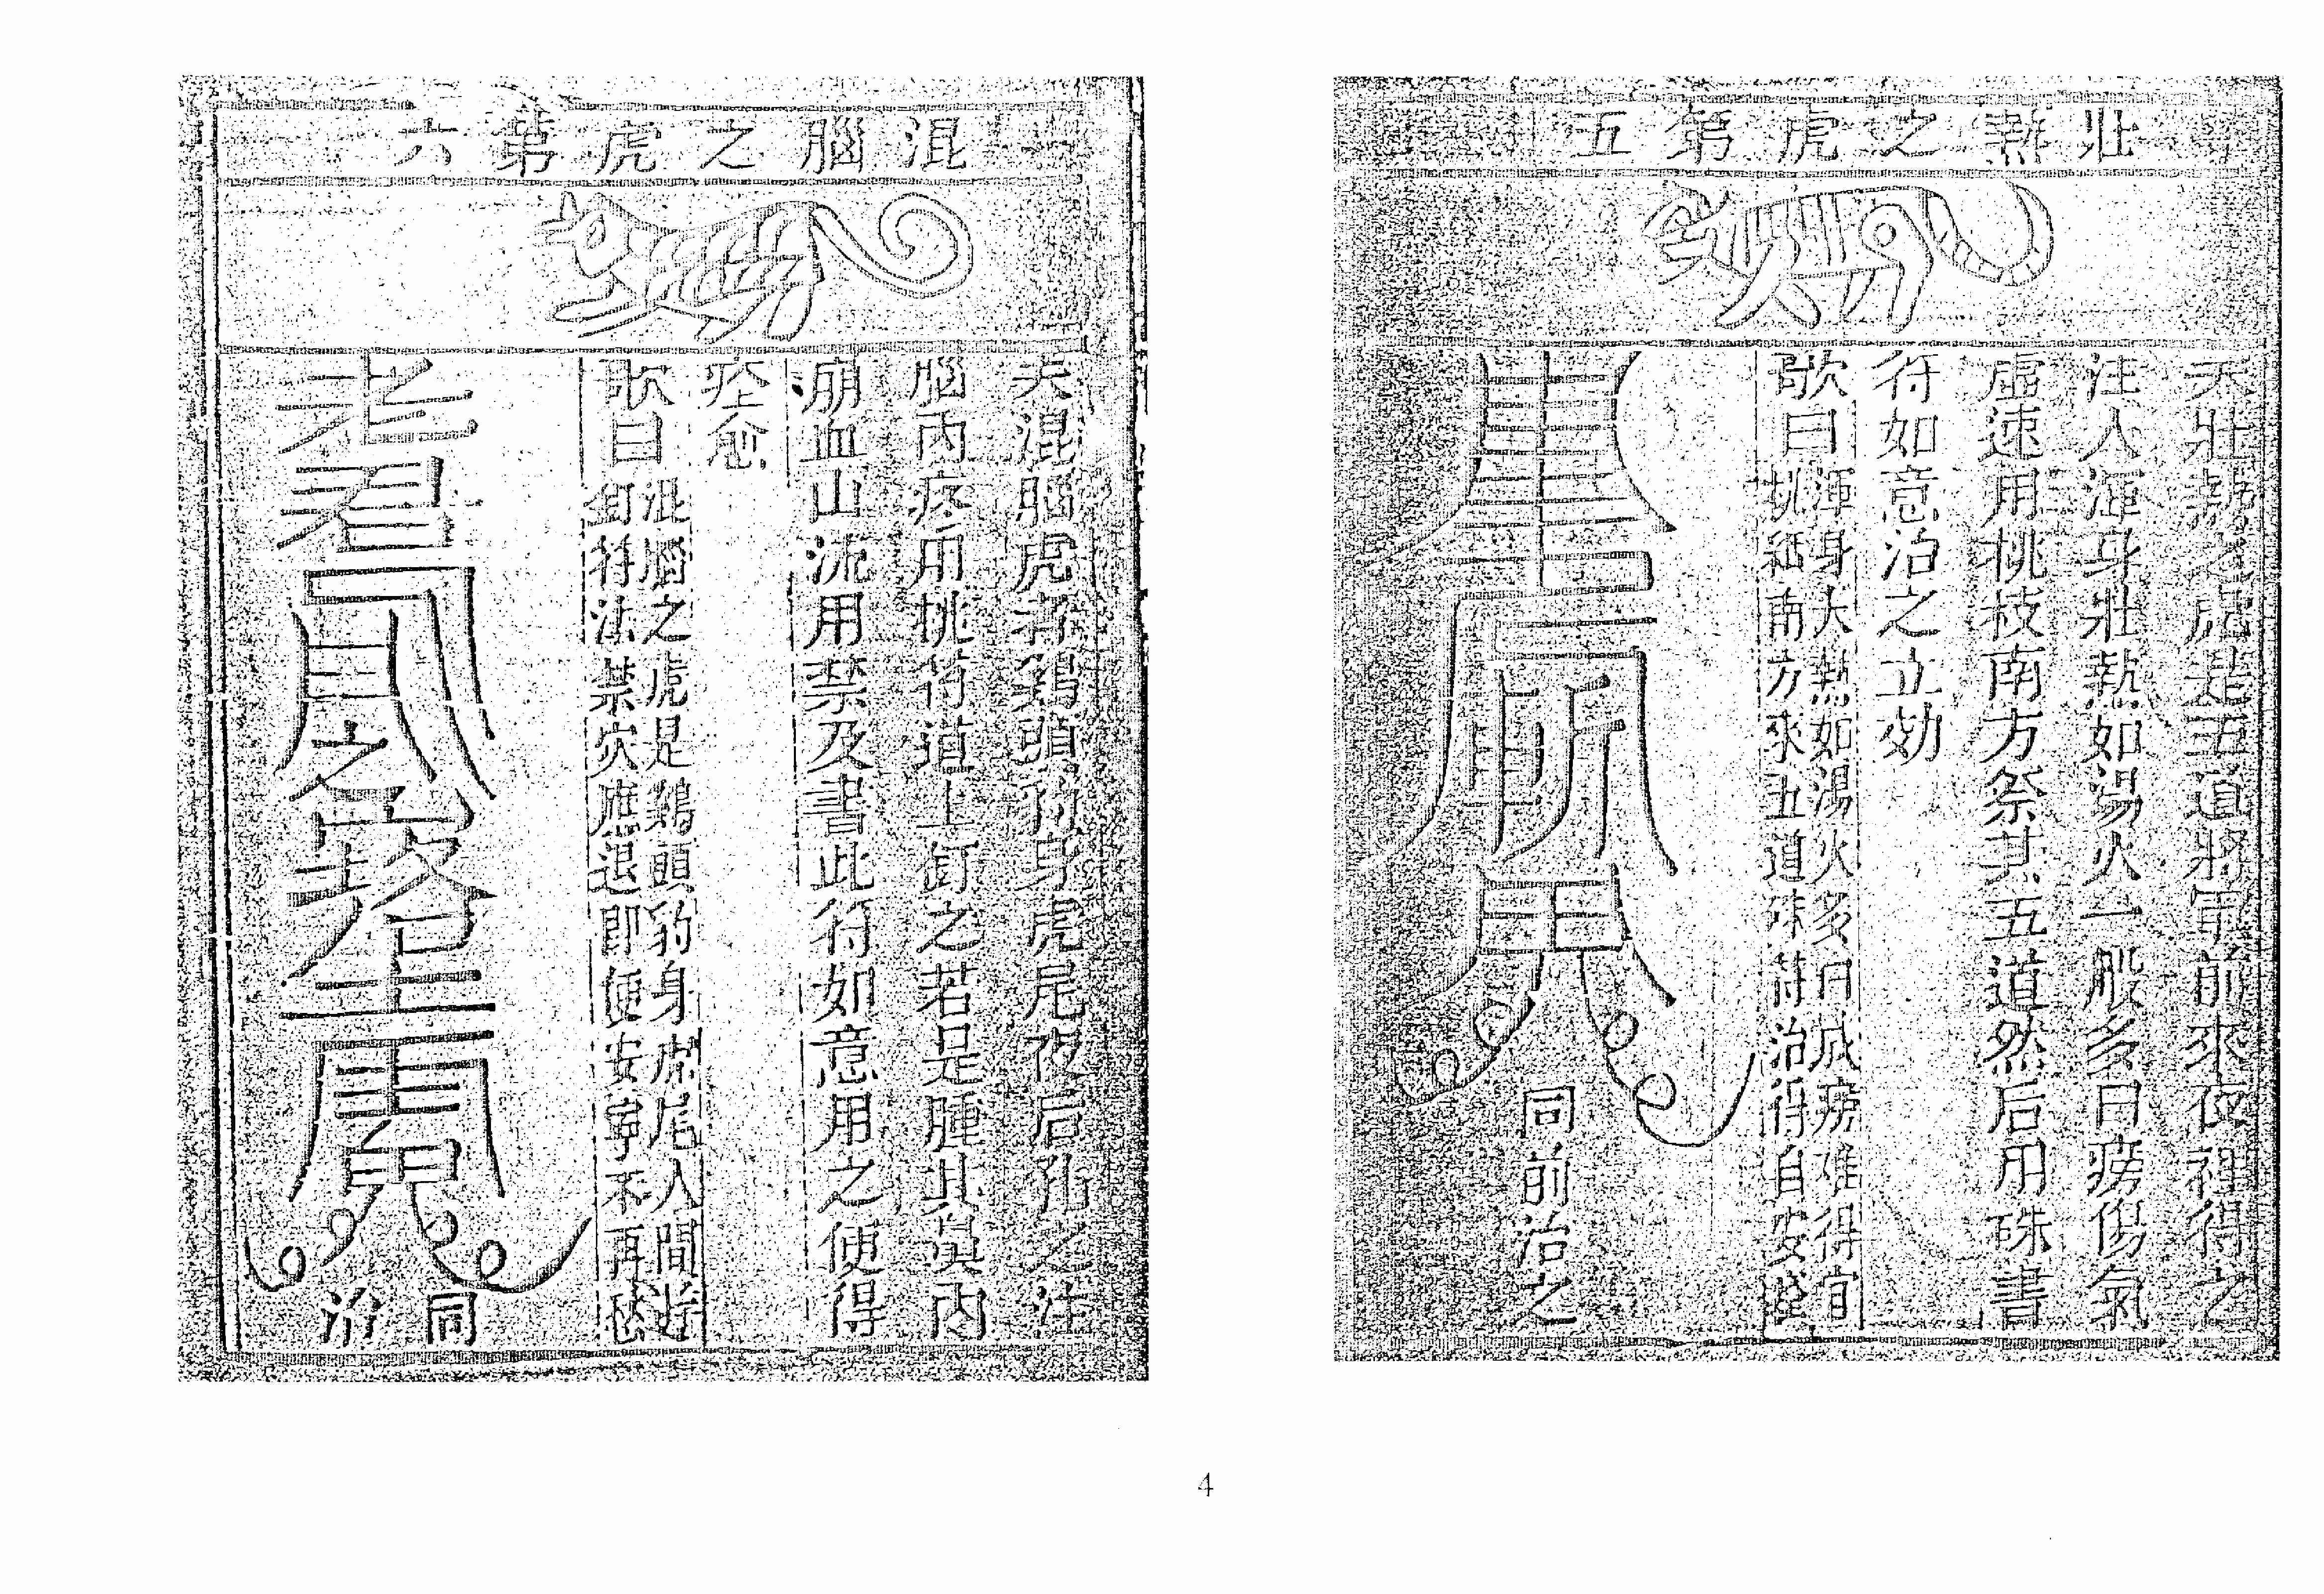 壯熱之虎第五
夫壯熱之虎是五道將軍前來夜裡得之
注人渾身壯熱如湯火一般多日癆傷氣
虛速用桃枝南方祭其五道然后用硃書
符如意治之立効
歌曰
渾身大熱如湯火多日成癆难得宜
桃枝南方求五道硃符治得自安
同前治之
混腦之虎第六
夫混腦虎者鷄頭豹身虎尾夜后犯之注
腦内疼用桃符道上釘之若是腫其與内
崩血山流用禁及書此符如意用之便得
痊愈
歌曰
混腦之虎是鷄頭豹身虎尾人間
釘符法禁穴應退即便安寧不再愁
同治
4